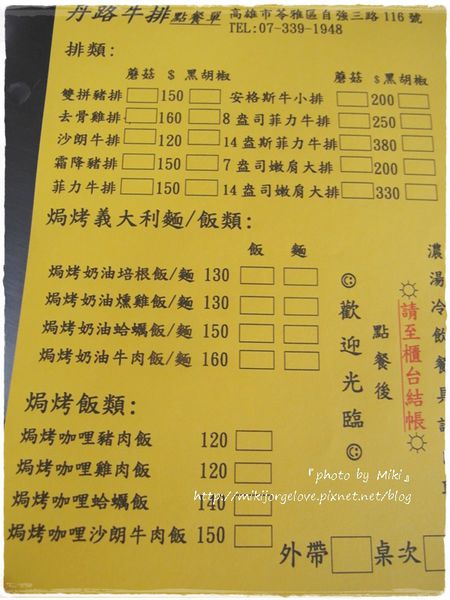 丹路牛排 點餐單 高雄市苓雅區自強三路116號
TEL:07-339-1948
排類:
蘑菇 $ 黑胡椒 蘑菇 $ 黑胡椒
雙拼豬排 150 安格斯牛小排 200
去骨雞排 160 8 盎司菲力牛排 250
沙朗牛排 120 14 盎斯菲力牛排 380
霜降豬排 150 7 盎司嫩肩大排 200
菲力牛排 150 14 盎司嫩肩大排 330
焗烤義大利麵/飯類:
飯 麵
焗烤奶油培根飯/麵 130
焗烤奶油燻雞飯/麵 130
焗烤奶油蛤蠣飯/麵 150
焗烤奶油牛肉飯/麵 160
歡迎光臨
點餐後
請至櫃台結帳
濃湯冷飲餐具
焗烤飯類:
焗烤咖哩豬肉飯 120
焗烤咖哩雞肉飯 120
焗烤咖哩蛤蠣飯 140
焗烤咖哩沙朗牛肉飯 150
外帶 桌次
『photo by Miki』
http://mikijorgelove.pixnet.net/blog